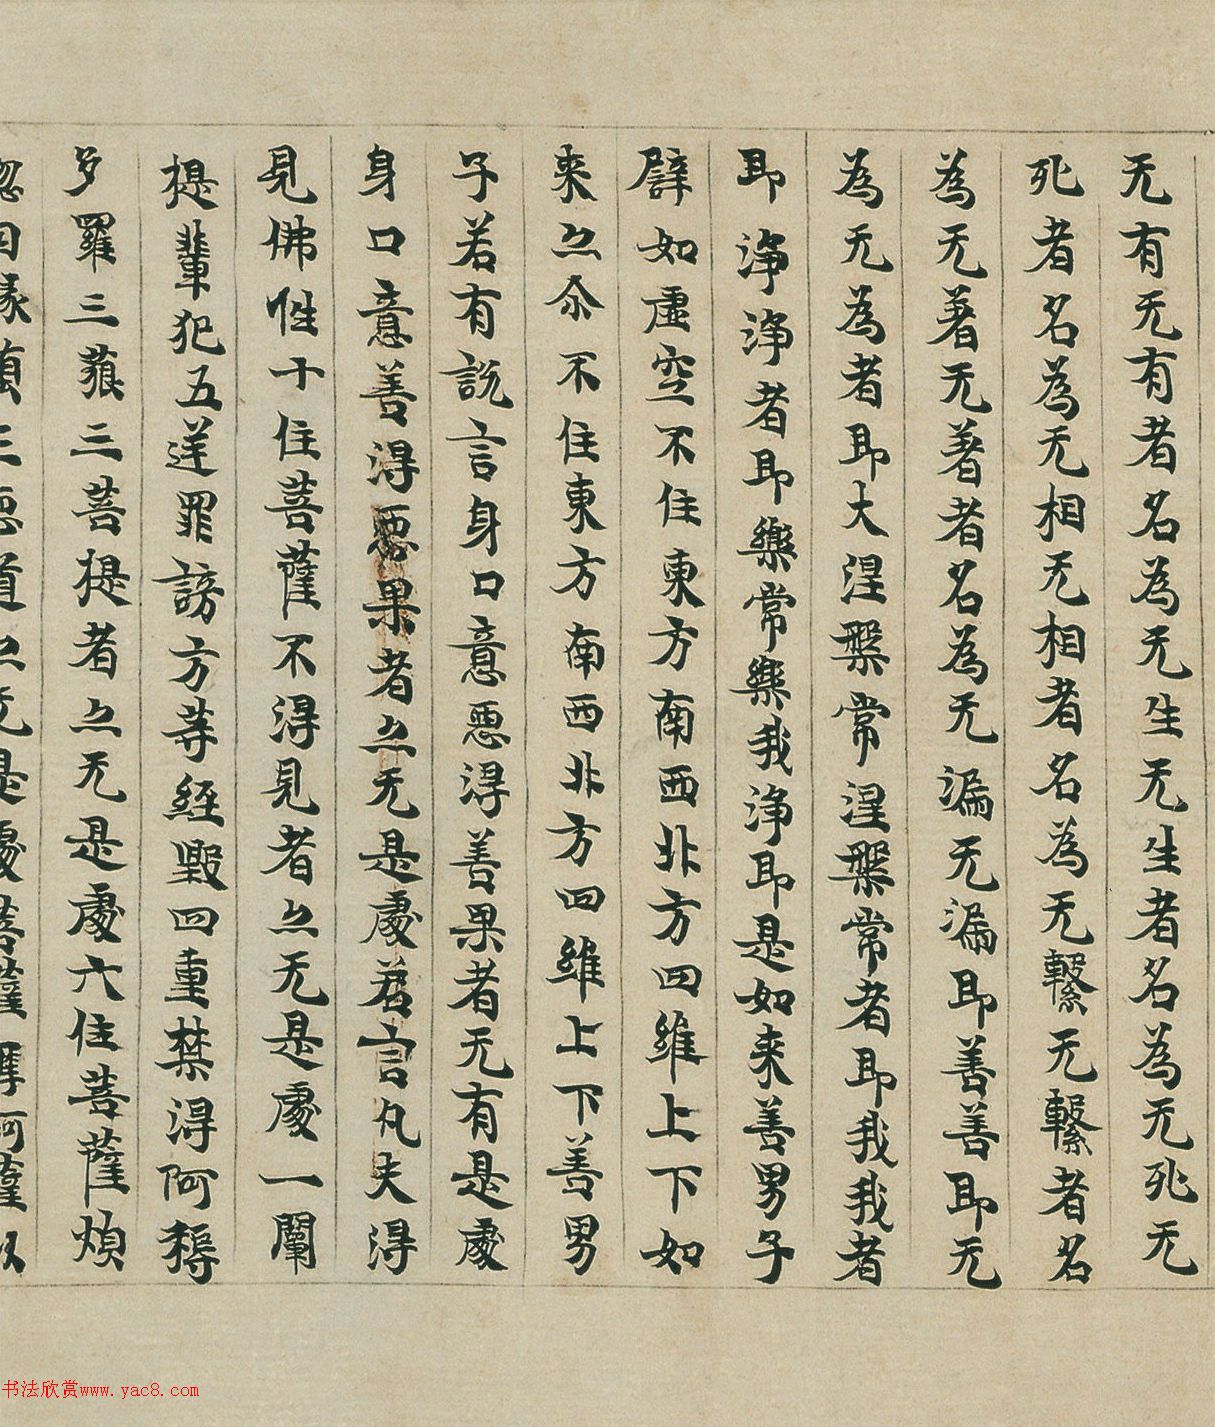 无有无有者名為无生无生者名為无死无
死者名為无相无相者名為无繫无繫者名
為无著无著者名為无漏无漏即善善即无
為无為者即大涅槃常涅槃常者即我我者
即淨淨者即樂常樂我淨即是如来善男子
譬如虛空不住東方南西北方四維上下如
来亦尒不住東方南西北方四維上下善男
子若有説言身口意惡得善果者无有是處
身口意善得惡果者亦无是處若言凡夫得
見佛性十住菩薩不得見者亦无是處一闡
提輩犯五逆罪謗方等經毀四重禁得阿耨
多羅三藐三菩提者亦无是處六住菩薩煩
惱因緣墮三惡道亦无是處菩薩摩訶薩以
书法欣赏www.yac8.com